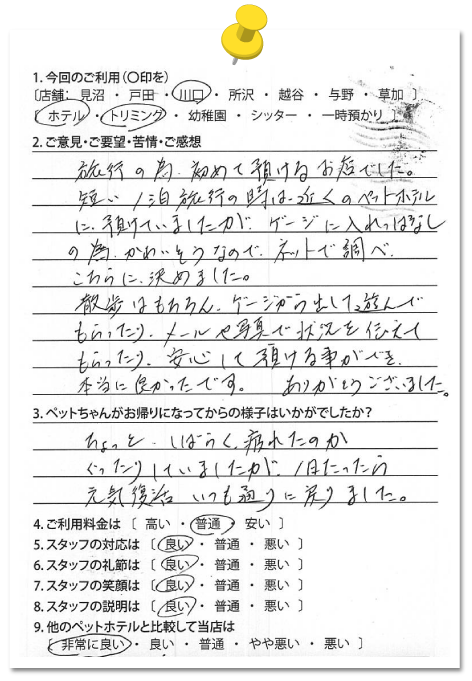 1.今回のご利用(〇印を)
〔店舗: 見沼 ・ 戸田 ・ 川口 ・ 所沢 ・ 越谷 ・ 与野 ・ 草加 〕
〔 ホテル ・ トリミング ・ 幼稚園 ・ シッター ・ 一時預かり 〕
2.ご意見・ご要望・苦情・ご感想
旅行の為、初めて預けるお店でした。
短い1泊旅行の時は、近くのペットホテル
に、預けていましたが、ゲージに入れっぱなし
の為、かわいそうなので、ネットで調べ、
こちらに、決めました。
散歩はもちろん、ゲージから出して遊んで
もらったり、メールや写真で状況を伝えて
もらったり、安心して預ける事ができ、
本当に良かったです。 ありがとうございました。
3.ペットちゃんがお帰りになってからの様子はいかがでしたか?
ちょっと、しばらく、疲れたのか
ぐったりしていましたが、1日たったら
元気復活 いつも通りに戻りました。
4.ご利用料金は 〔 高い ・ 普通 ・ 安い 〕
5.スタッフの対応は 〔 良い ・ 普通 ・ 悪い 〕
6.スタッフの礼節は 〔 良い ・ 普通 ・ 悪い 〕
7.スタッフの笑顔は 〔 良い ・ 普通 ・ 悪い 〕
8.スタッフの説明は 〔 良い ・ 普通 ・ 悪い 〕
9.他のペットホテルと比較して当店は
〔 非常に良い ・ 良い ・ 普通 ・ やや悪い ・ 悪い 〕